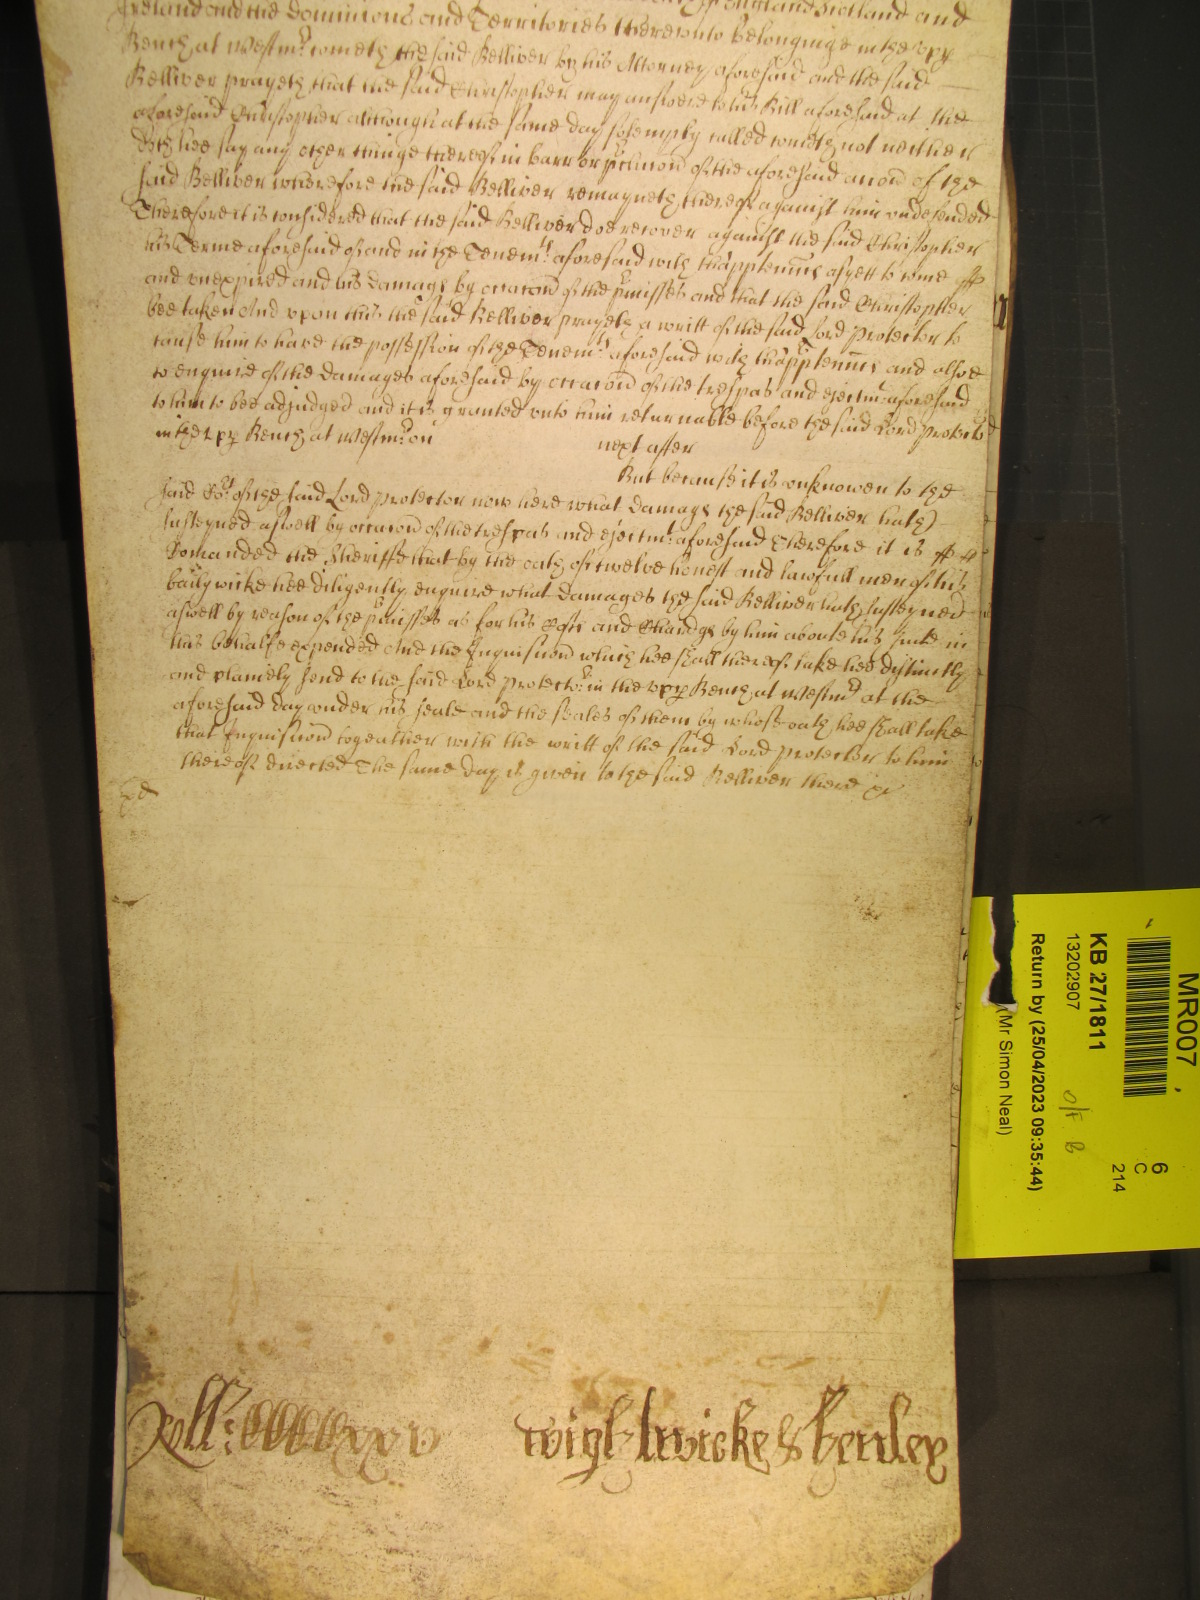 Ireland and the Dominions and Territories thereunto belonginge in the upp
Bench at Westmr cometh the said Kelliver by his Attorney aforesaid and the said
Kelliver prayeth that the said Christopher may answere to his Bill aforesaid at the
aforesaid Christopher although at the same day solemply called cometh not neither
doth hee say any other thinge thereof in barr or pclusion of the aforesaid accon of the
said Kelliver wherefore the said Kelliver remayneth thereof against him undefended
Therefore it is considered that the said Kelliver doe recover against the said Christopher
his Terme aforesaid of and in the Tenemts aforesaid with thapptennces as yett to come
and unexpired and his damags by occacon of the pmisses and that the said Christopher
bee taken And upon this the said Kelliver prayeth a writt of the said Lord Protector to
cause him to have the possession of the Tenemts aforesaid with thapptennces and alsoe
to enquire of the damages aforesaid by occacon of the trespas and ejectmt aforesaid
to him to bee adjudged and it is granted unto him returnable before the said Lord Protector
in the upp Bench at Westmr on next after
But because it is unknowen to the
said Cort of the said Lord Protector now here what damags the said Kelliver hath
susteyned aswell by occacon of the trespas and ejectmt aforesaid Therefore it is
Comanded the Sheriffe that by the oath of twelve honest and lawfull men of his
bailywicke hee diligently enquire what damages the said Kelliver hath susteyned
aswell by reason of the pmisses as for his Costs and Chardgs by him aboute his suite in
this behalfe expended And the Inquisicion which hee shall thereof take hee distinctly
and plainely send to the said Lord Protector in the upp Bench at Westmr at the
aforesaid day under his seale and the seales of them by whose oath hee shall take
that Inquisicion togeather with the writt of the said Lord Protector to him
thereof directed The same day is given to the said Kelliver there
Wightwicke & Henley
MR007
KB 27/1811
13202907
Return by (25/04/2023 09:35:44)
(Mr Simon Neal)
O/F B
6
C
214